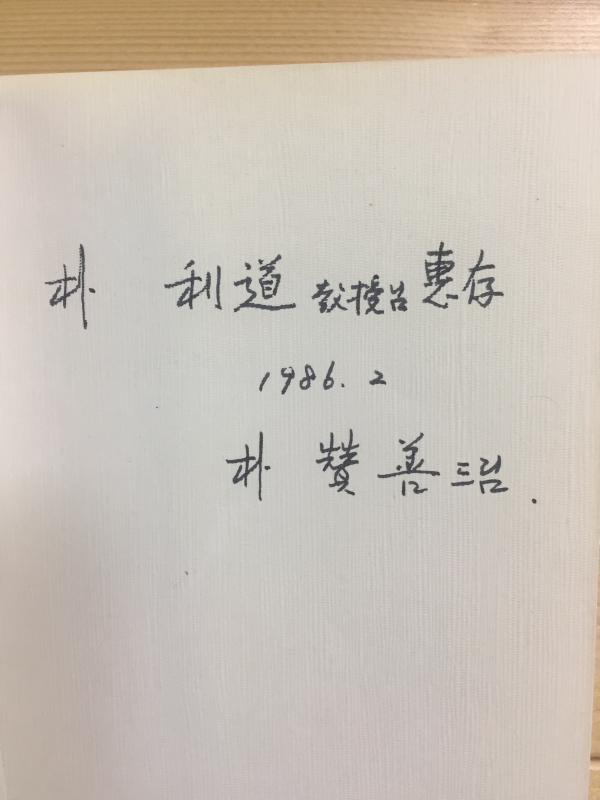 朴 利道 敎授님 惠存
1986. 2
朴 贊善 드림.